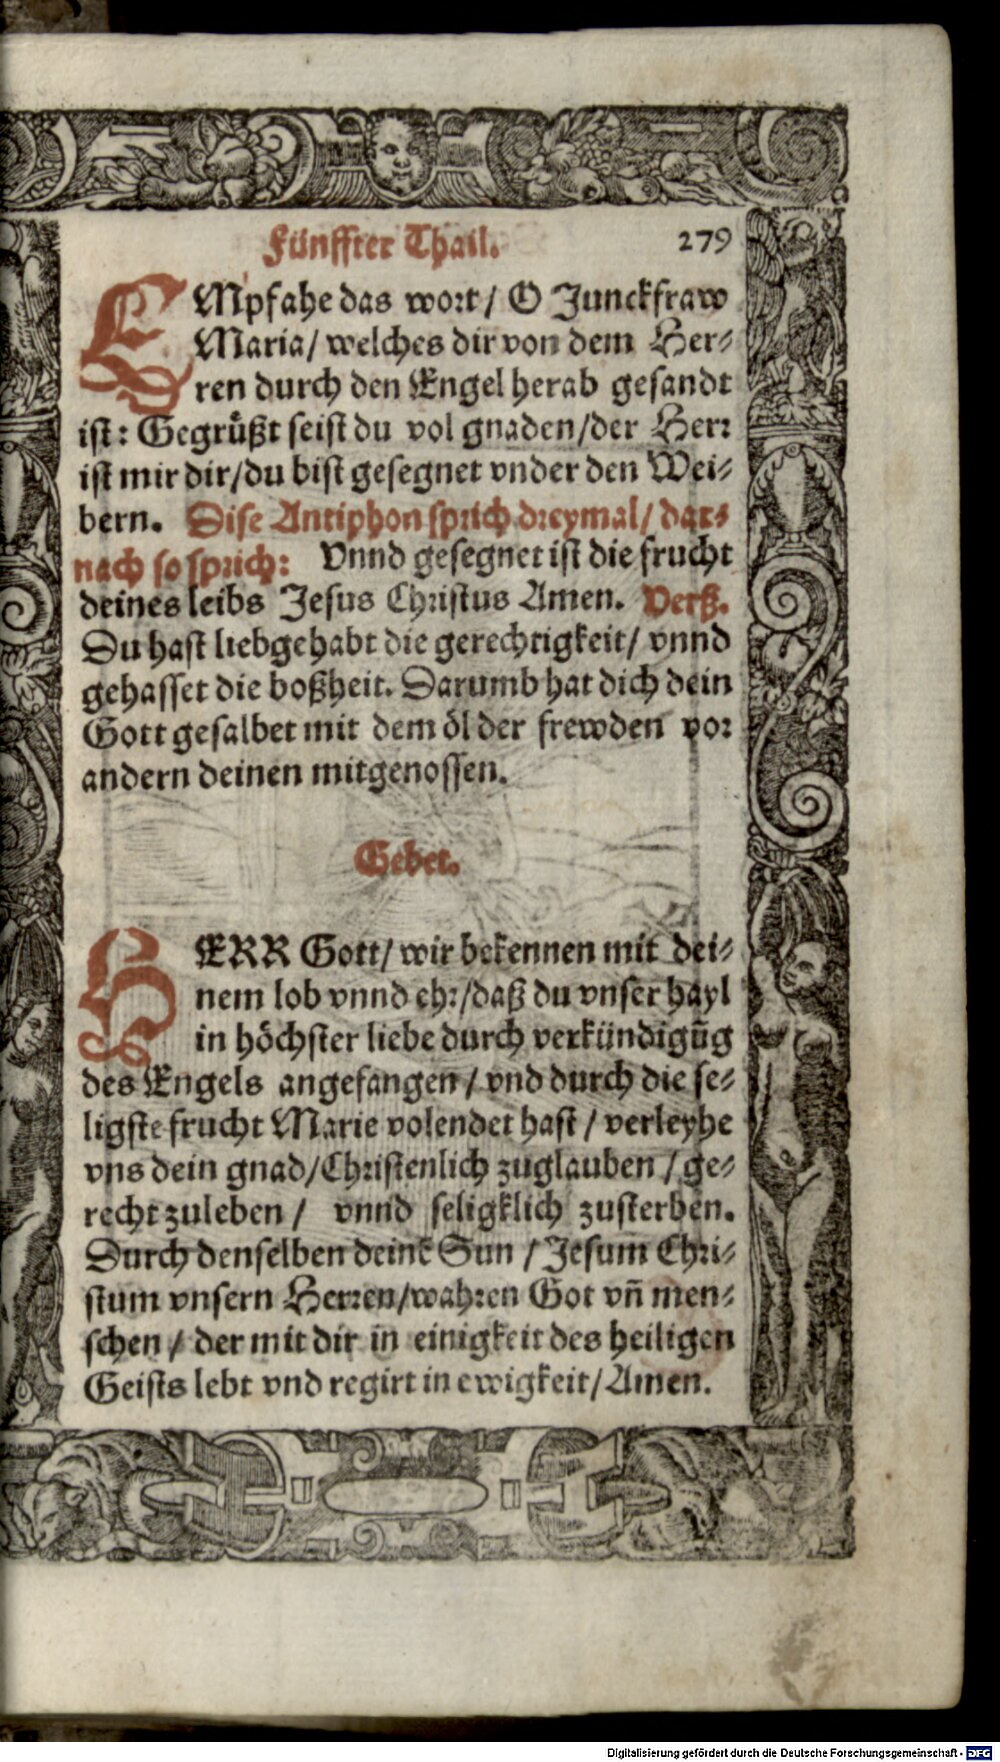 Fünffter Thail. 279
EMpfahe das wort / O Junckfraw
Maria / welches dir von dem Her-
ren durch den Engel herab gesandt
ist: Gegrüßt seist du vol gnaden / der Herr
ist mir dir / du bist gesegnet vnder den Wei-
bern. Dise Antiphon sprich dreymal / dar-
nach so sprich: Vnnd gesegnet ist die frucht
deines leibs Jesus Christus Amen. Verß.
Du hast liebgehabt die gerechtigkeit / vnnd
gehasset die boßheit. Darumb hat dich dein
Gott gesalbet mit dem öl der frewden vor
andern deinen mitgenossen.
Gebet.
HERR Gott / wir bekennen mit dei-
nem lob vnnd ehr / daß du vnser hayl
in höchster liebe durch verkündigũg
des Engels angefangen / vnd durch die se-
ligste frucht Marie volendet hast / verleyhe
vns dein gnad / Christenlich zuglauben / ge-
recht zuleben / vnnd seligklich zusterben.
Durch denselben deinẽ Sun / Jesum Chri-
stum vnsern Herren / wahren Got vñ men-
schen / der mit dir in einigkeit des heiligen
Geists lebt vnd regirt in ewigkeit / Amen.
Digitalisierung gefördert durch die Deutsche Forschungsgemeinschaft - DFG